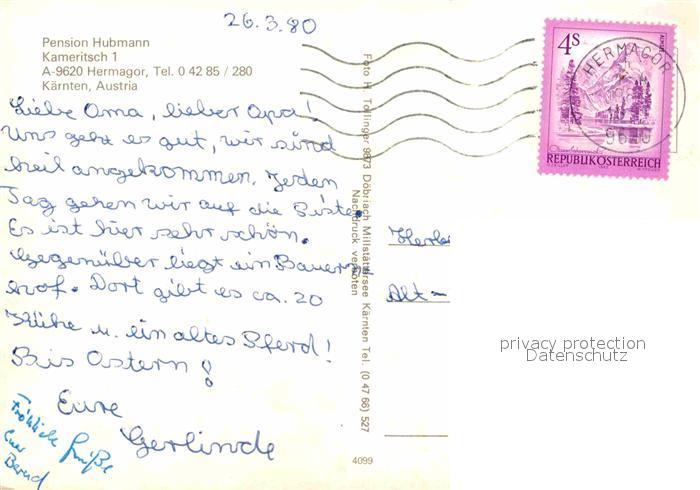 26.3.80
Pension Hubmann
Kameritsch 1
A-9620 Hermagor, Tel. 0 42 85 / 280
Kärnten, Austria
Liebe Oma, lieber Opa!
Uns geht es gut, wir sind
heil angekommen. Jeden
Tag gehen wir auf die Piste.
Es ist hier sehr schön.
Gegenüber liegt ein Bauern-
hof. Dort gibt es ca. 20
Kühe u. ein altes Pferd!
Bis Ostern!
Eure
Gerlinde
Fröhliche Grüße
Euer
Bernd
Foto H. Tollinger 9873 Döbriach Millstättersee Kärnten Tel. (0 47 66) 527
Nachdruck verboten
4099
4S
REPUBLIK ÖSTERREICH
HERMAGOR
9620
Herbe
Alt-
privacy protection
Datenschutz